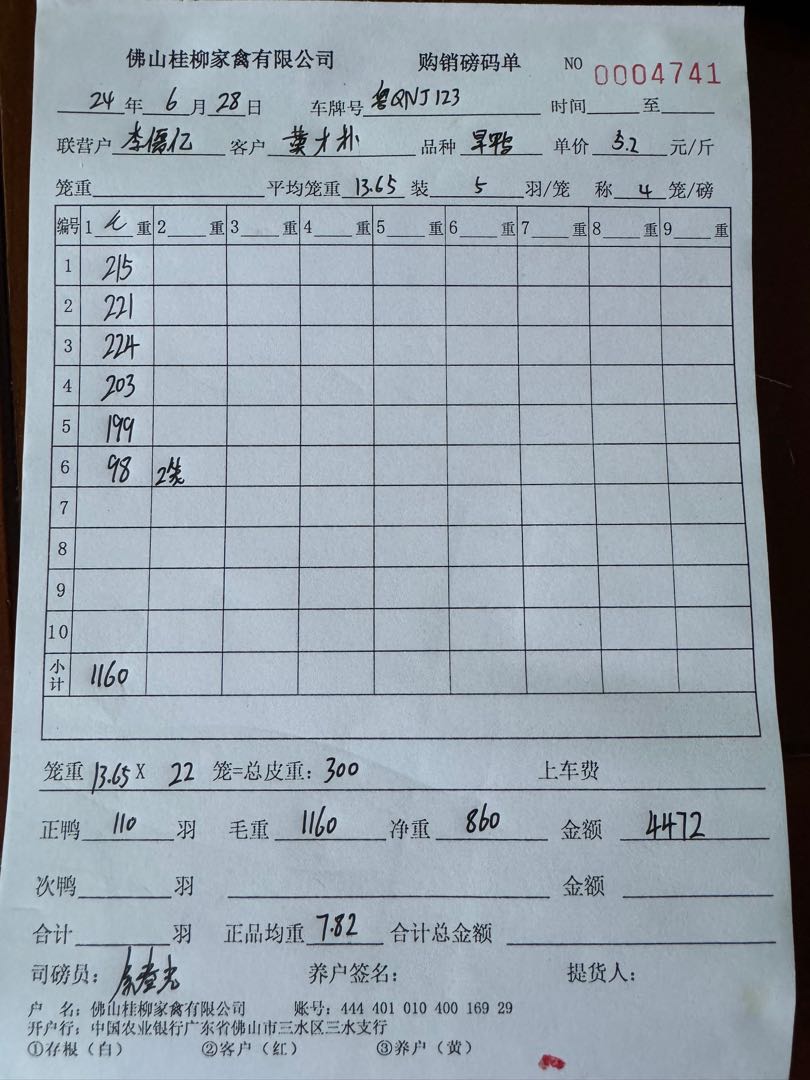 佛山桂柳家禽有限公司 购销磅码单 NO 0004741
24 年 6 月 28 日 车牌号 鲁QNJ123 时间 至
联营户 李 亿 客户 黄才朴 品种 旱鸭 单价 5.2 元/斤
笼重 平均笼重 13.65 装 5 羽/笼 称 4 笼/磅
编号 1 毛 重 2 重 3 重 4 重 5 重 6 重 7 重 8 重 9 重
1 215
2 221
3 224
4 203
5 199
6 98 2笼
7
8
9
10
小计 1160
笼重 13.65 X 22 笼=总皮重: 300 上车费
正鸭 110 羽 毛重 1160 净重 860 金额 4472
次鸭 羽 金额
合计 羽 正品均重 7.82 合计总金额
司磅员: 养户签名: 提货人:
户 名: 佛山桂柳家禽有限公司 账号: 444 401 010 400 169 29
开户行: 中国农业银行广东省佛山市三水区三水支行
①存根(白) ②客户(红) ③养户(黄)